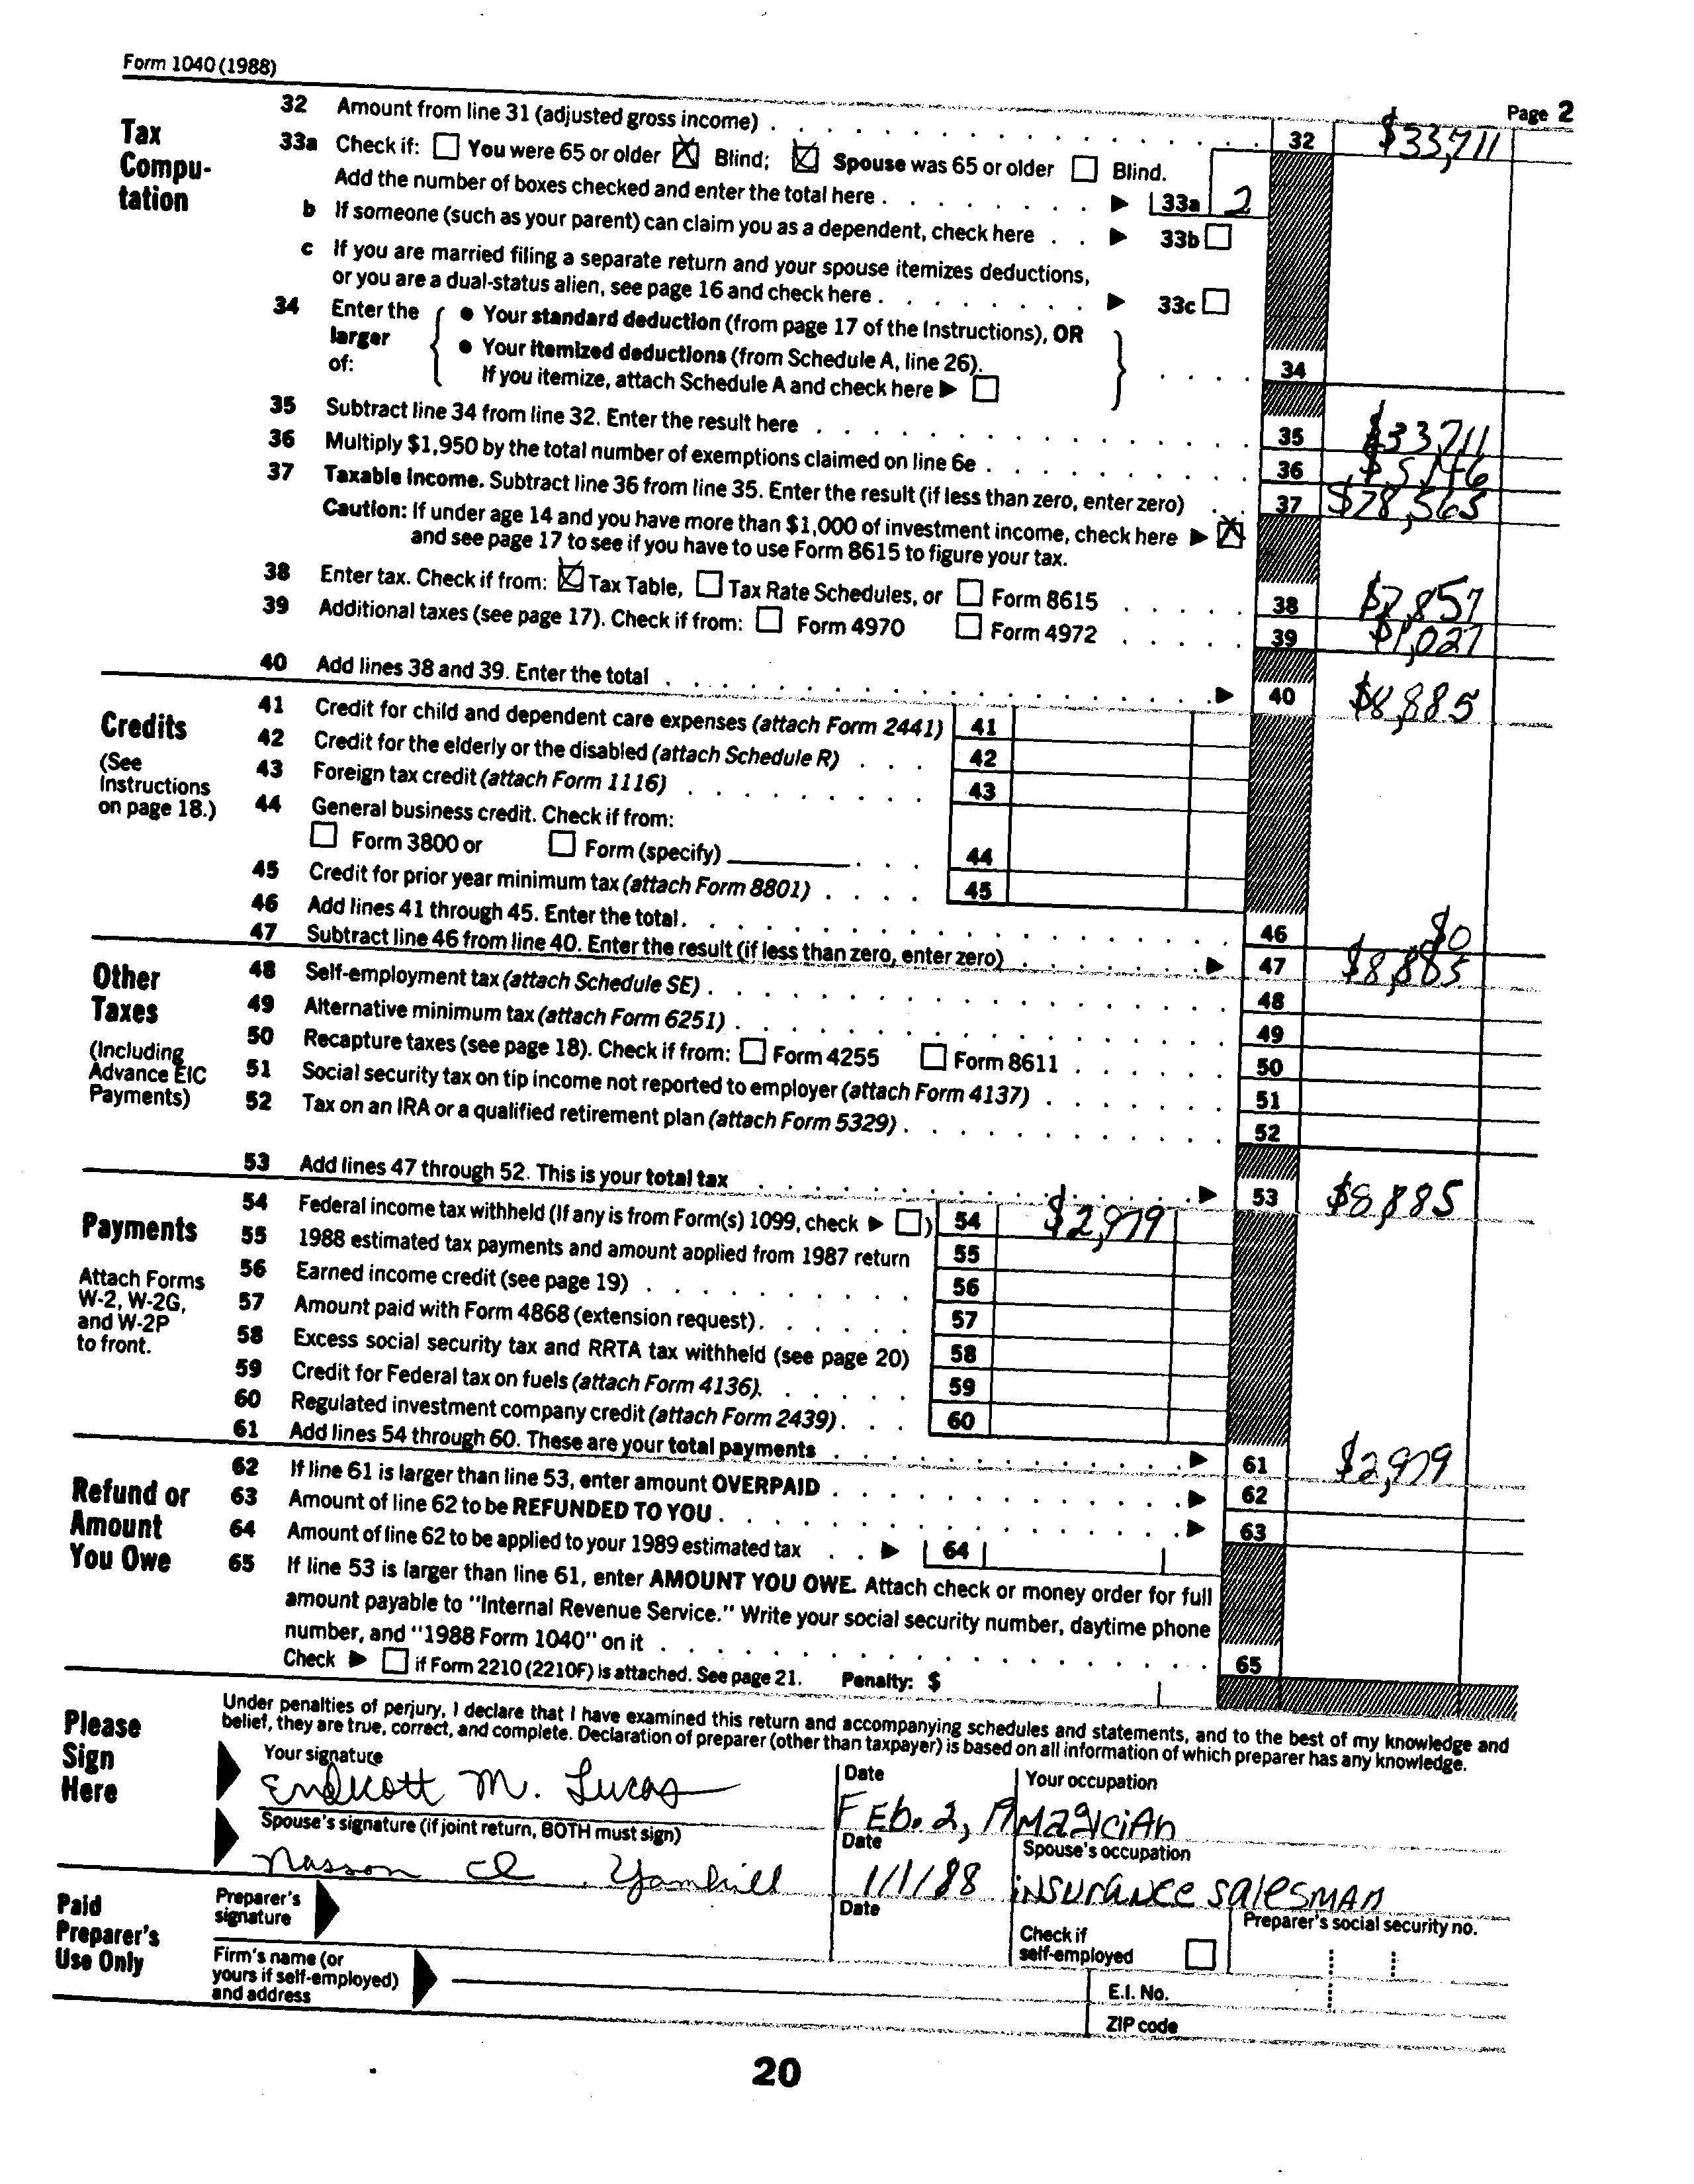 Form 1040 (1988)
Page 2
Tax Compu- tation
32 Amount from line 31 (adjusted gross income) . . . 32 $33,711
33a Check if: ☐ You were 65 or older ☒ Blind; ☒ Spouse was 65 or older ☐ Blind.
Add the number of boxes checked and enter the total here . . . ▶ 33a 2
b If someone (such as your parent) can claim you as a dependent, check here . . ▶ 33b ☐
c If you are married filing a separate return and your spouse itemizes deductions,
or you are a dual-status alien, see page 16 and check here . . . ▶ 33c ☐
34 Enter the larger of: { ● Your standard deduction (from page 17 of the Instructions), OR
● Your itemized deductions (from Schedule A, line 26).
If you itemize, attach Schedule A and check here ▶ ☐ } . . . . 34
35 Subtract line 34 from line 32. Enter the result here . . . 35 $33,711
36 Multiply $1,950 by the total number of exemptions claimed on line 6e . . . 36 $5,146
37 Taxable income. Subtract line 36 from line 35. Enter the result (if less than zero, enter zero) . . 37 $28,565
Caution: If under age 14 and you have more than $1,000 of investment income, check here ▶ ☒
and see page 17 to see if you have to use Form 8615 to figure your tax.
38 Enter tax. Check if from: ☒ Tax Table, ☐ Tax Rate Schedules, or ☐ Form 8615 . . . . 38 $7,857
39 Additional taxes (see page 17). Check if from: ☐ Form 4970 ☐ Form 4972 . . . . 39 $1,027
40 Add lines 38 and 39. Enter the total . . . ▶ 40 $8,885
Credits
(See Instructions on page 18.)
41 Credit for child and dependent care expenses (attach Form 2441) 41
42 Credit for the elderly or the disabled (attach Schedule R) . . . 42
43 Foreign tax credit (attach Form 1116) . . . 43
44 General business credit. Check if from:
☐ Form 3800 or ☐ Form (specify) ______ . . . 44
45 Credit for prior year minimum tax (attach Form 8801) . . . . 45
46 Add lines 41 through 45. Enter the total . . . 46 $0
47 Subtract line 46 from line 40. Enter the result (if less than zero, enter zero) . . . ▶ 47 $8,885
Other Taxes
(Including Advance EIC Payments)
48 Self-employment tax (attach Schedule SE) . . . 48
49 Alternative minimum tax (attach Form 6251) . . . 49
50 Recapture taxes (see page 18). Check if from: ☐ Form 4255 ☐ Form 8611 . . . 50
51 Social security tax on tip income not reported to employer (attach Form 4137) . . . 51
52 Tax on an IRA or a qualified retirement plan (attach Form 5329) . . . 52
53 Add lines 47 through 52. This is your total tax . . . ▶ 53 $8,885
Payments
Attach Forms W-2, W-2G, and W-2P to front.
54 Federal income tax withheld (If any is from Form(s) 1099, check ▶ ☐) 54 $2,979
55 1988 estimated tax payments and amount applied from 1987 return 55
56 Earned income credit (see page 19) . . . 56
57 Amount paid with Form 4868 (extension request) . . . 57
58 Excess social security tax and RRTA tax withheld (see page 20) 58
59 Credit for Federal tax on fuels (attach Form 4136). . . . 59
60 Regulated investment company credit (attach Form 2439) . . . 60
61 Add lines 54 through 60. These are your total payments . . . ▶ 61 $2,979
Refund or Amount You Owe
62 If line 61 is larger than line 53, enter amount OVERPAID . . . ▶ 62
63 Amount of line 62 to be REFUNDED TO YOU . . . ▶ 63
64 Amount of line 62 to be applied to your 1989 estimated tax . . ▶ 64
65 If line 53 is larger than line 61, enter AMOUNT YOU OWE. Attach check or money order for full
amount payable to "Internal Revenue Service." Write your social security number, daytime phone
number, and "1988 Form 1040" on it . . . 65
Check ▶ ☐ if Form 2210 (2210F) is attached. See page 21. Penalty: $
Please Sign Here
Under penalties of perjury, I declare that I have examined this return and accompanying schedules and statements, and to the best of my knowledge and
belief, they are true, correct, and complete. Declaration of preparer (other than taxpayer) is based on all information of which preparer has any knowledge.
Your signature Date Your occupation
Endicott M. Lucas FEb. 2, 19 Magician
Spouse's signature (if joint return, BOTH must sign) Date Spouse's occupation
Nasson Yamhill 1/1/88 insurance salesman
Paid Preparer's Use Only
Preparer's signature Date Check if self-employed ☐ Preparer's social security no.
Firm's name (or yours if self-employed) and address
E.I. No.
ZIP code
20